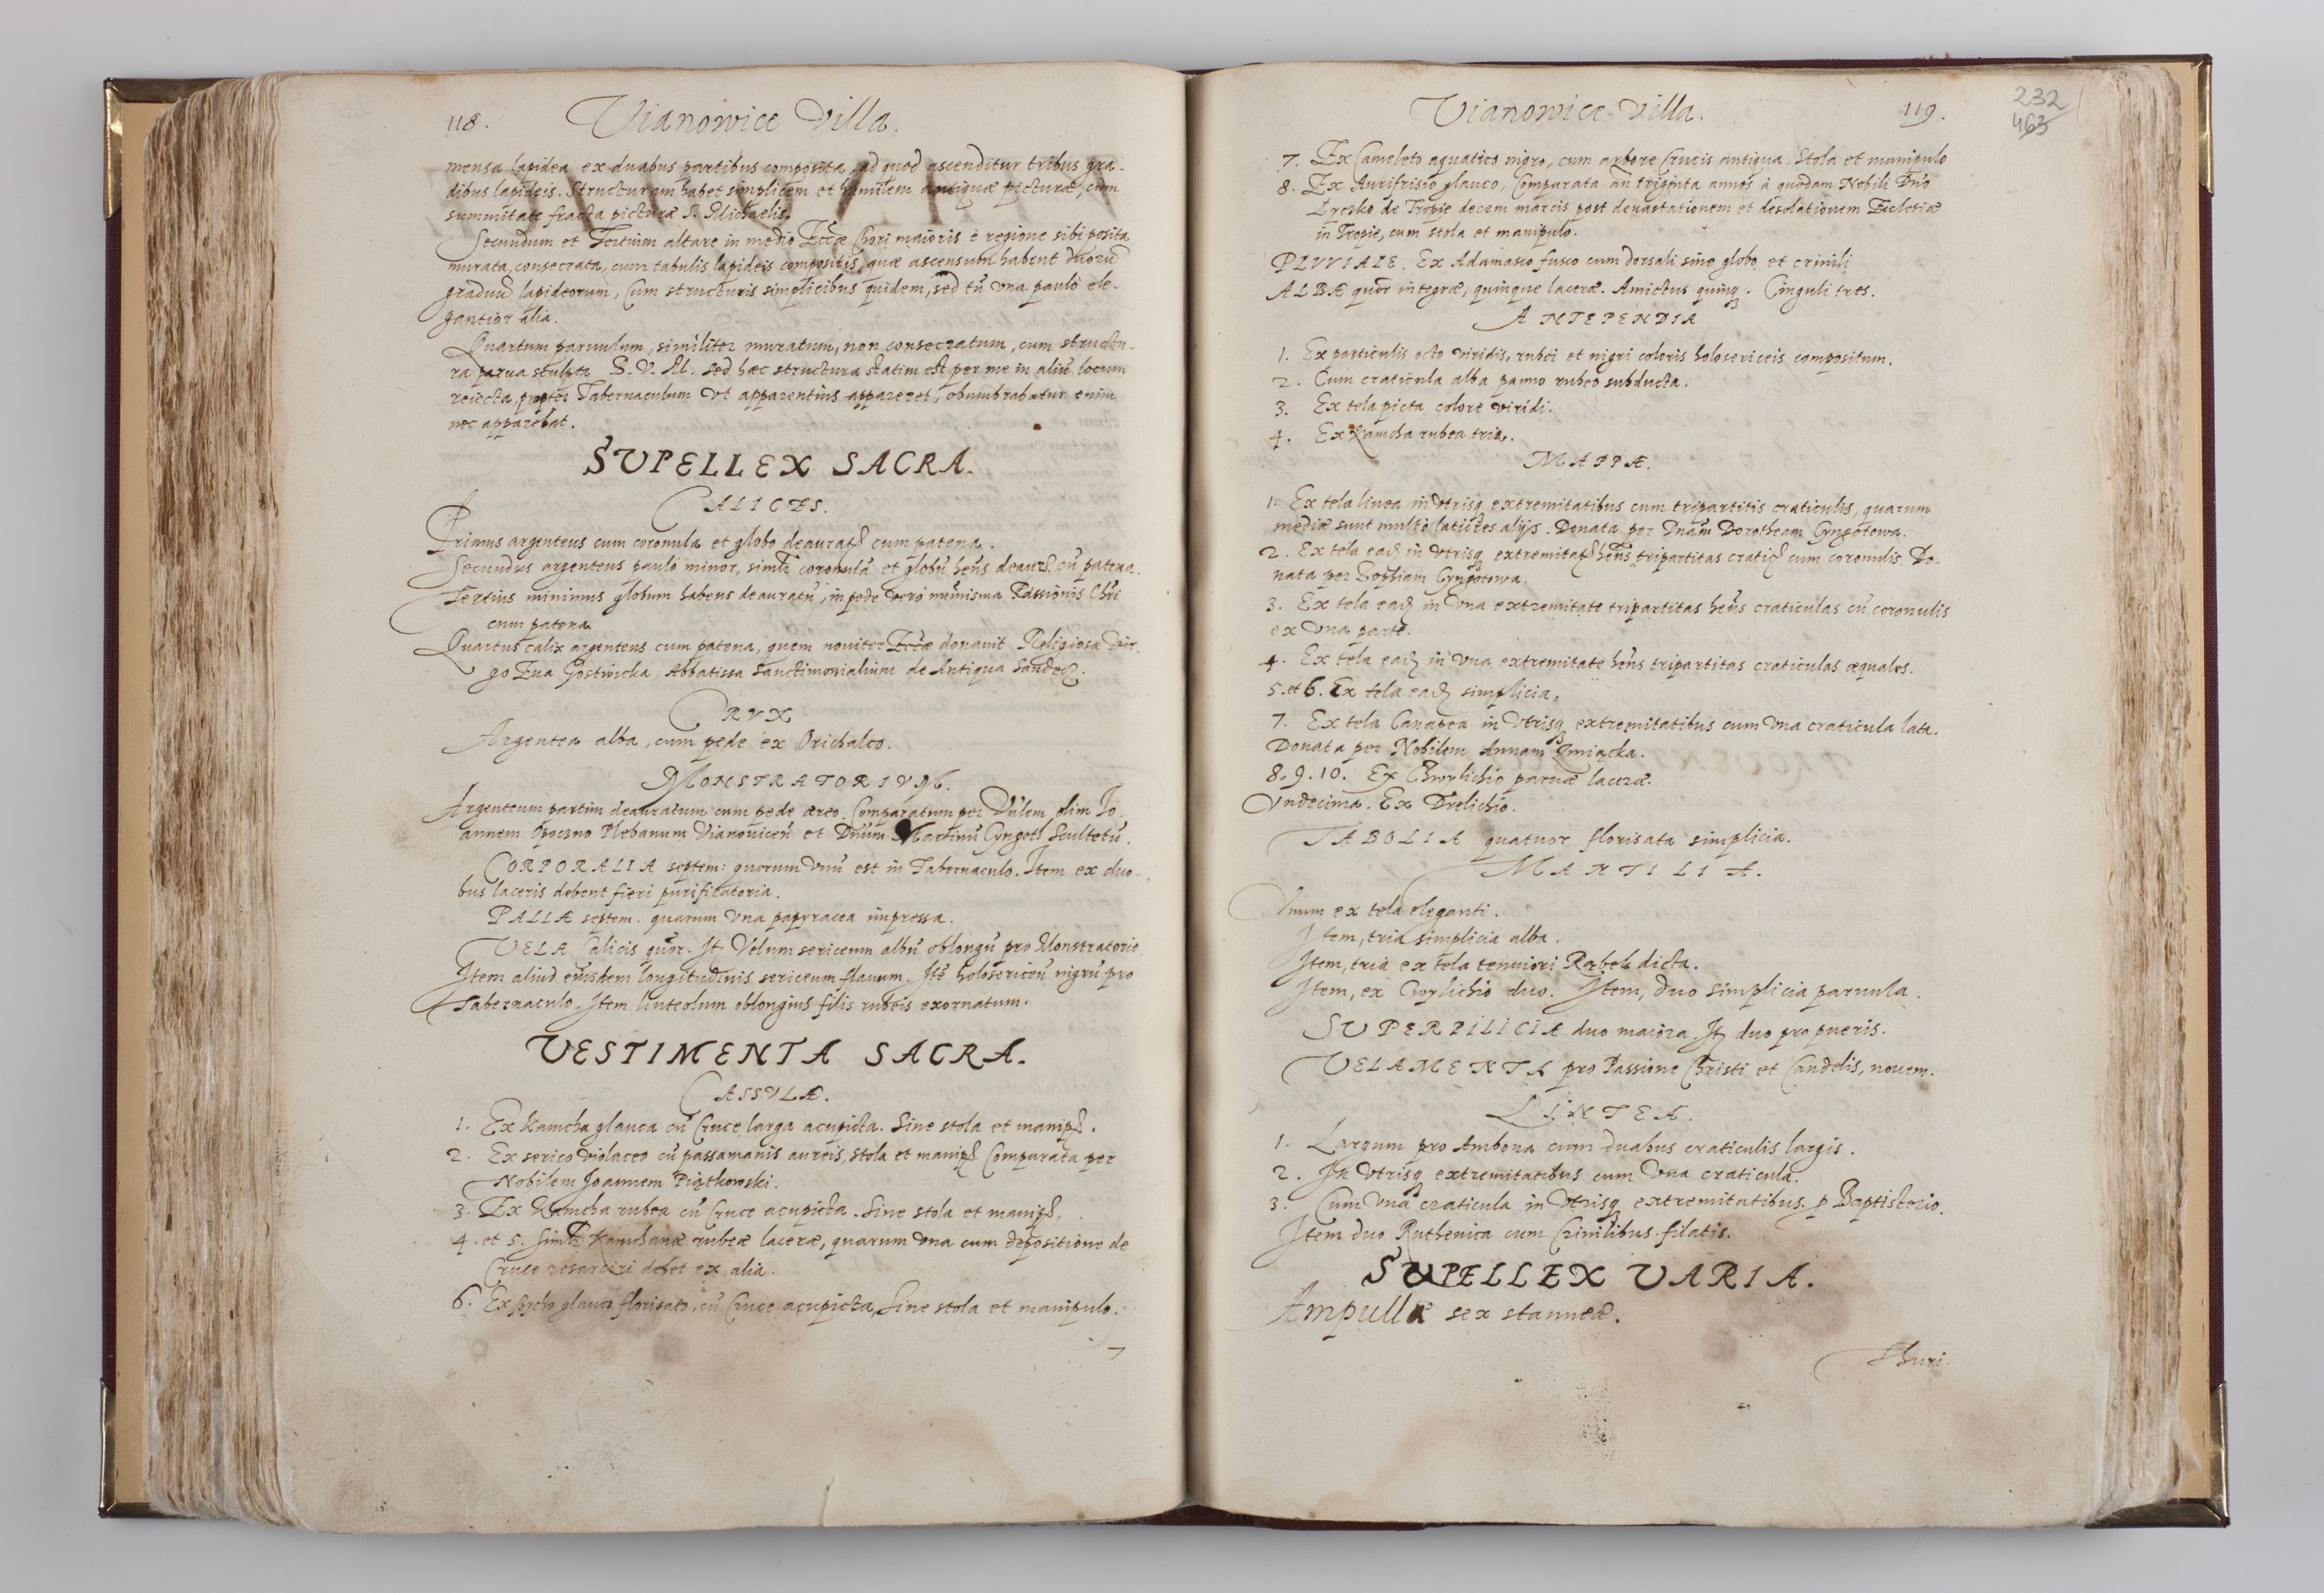 118. Vianowice Villa.
mensa lapidea ex duabus partibus composita, ad quod ascenditur tribus gra-
dibus lapideis. Structuram habet simplicem et humilem antiquæ picturæ, cum
summitate fracta picturæ S. Michaelis.
Secundum et Tertium altare in medio Eccæ Chori maioris è regione sibi posita
murata, consecrata, cum tabulis lapideis compositis, quæ ascensum habent duorũ
graduũ lapideorum, Cum structuris simplicibus quidem, sed tñ vna paulò ele-
gantior alia.
Quartum paruulum, similiter muratum, non consecratum, cum structu-
ra parua sculpta B. V. M. sed hæc structura statim est per me in aliũ locum
reiecta, propter Tabernaculum vt apparentius appareret, obumbrabatur enim
nec apparebat.
SVPELLEX SACRA.
CALICES.
Primus argenteus cum coronula et globo deaurat. cum patena.
Secundus argenteus paulò minor, simlr coronulã et globũ hẽns deaur. cũ patena.
Tertius minimus globum habens deauratũ, in pede vero numisma Passionis Chri
cum patena
Quartus calix argenteus cum patena, quem nouiter Eccæ donauit Religiosa Vir-
go Eua Gostwicka, Abbatissa Sanctimonialium de Antiqua Sandec.
CRVX
Argentea alba, cum pede ex Orichalco.
MONSTRATORIVM.
Argenteum partim deauratum cum pede æreo. Comparatum per Vñlem olim Jo-
annem Opoczno Plebanum Vianouiceñ et Dñum Martinũ Cyngot Scultetũ.
CORPORALIA septem: quorum vnũ est in Tabernaculo. Item ex duo-
bus laceris debent fieri purificatoria.
PALLÆ septem. quarum vna papyracea impressa.
VELA Calicis quor. It. Velum sericeum albũ oblongũ pro Monstratorio.
Item aliud eiusdem longitudinis sericeum flauum. Itẽ holosericeũ nigrũ pro
Tabernaculo. Item linteolum oblongius filis rubeis exornatum.
VESTIMENTA SACRA.
CASSVLÆ.
1. Ex Kamcha glauca cũ Cruce larga acupicta. Sine stola et manip.
2. Ex serico violaceo cũ passamanis aureis, stola et manip. Comparata per
Nobilem Joannem Piątkowski.
3. Ex Kamcha rubea cũ Cruce acupicta. Sine stola et manip.
4. et 5. Simlr Kamchanæ rubeæ laceræ, quarum vna cum depositione de
Cruce resarciri debet ex alia.
6. Ex glauco florisato, cũ Cruce acupicta, Sine stola et manipulo.
7
Vianowice Villa. 119.
232
463
7. Ex Cameleto aquatico nigro, cum arbore Crucis antiqua. Stola et manipulo
8. Ex Aurifrisio glauco, Comparata an triginta annos à quodam Nobili Dño
Lyczko de Tropie decem marcis post deuastationem et desolationem Ecclesiæ
in Tropie, cum stola et manipulo.
PLVVIALE. Ex Adamasco fusco cum dorsali sine globo et crinili
ALBÆ quor integræ, quinque laceræ. Amictus quinq. Cinguli tres.
ANTEPENDIA
1. Ex particulis octo viridis, rubei et nigri coloris holosericeis compositum.
2. Cum craticula alba panno rubeo subducta.
3. Ex tela picta colore viridi.
4. Ex Kamcha rubea tria.
MAPPÆ.
1. Ex tela linea in vtrisq extremitatibus cum tripartitis craticulis, quarum
mediæ sunt multò latiores alijs. Donata per Dnam Dorotheam Cyngotowa.
2. Ex tela ead. in vtrisq extremitat. hẽns tripartitas cratic. cum coronulis. Do-
nata per Sophiam Cyngotowa.
3. Ex tela ead. in vna extremitate tripartitas hẽns craticulas cũ coronulis
ex vna parte.
4. Ex tela ead. in vna extremitate hẽns tripartitas craticulas æquales.
5. et 6. Ex tela ead. simplicia.
7. Ex tela Canapea in vtrisq extremitatibus cum vna craticula lata.
Donata per Nobilem Annam Zmiącka.
8. 9. 10. Ex Cwylichio paruæ laceræ.
Vndecima. Ex Drelichio.
TABOLIA quatuor florisata simplicia.
MANTILIA.
Vnum ex tela eleganti.
Item, tria simplicia alba.
Item, tria ex tela tenuiori Rąbek dicta.
Item, ex Cwylichio duo. Item, duo simplicia paruula.
SUPERPILICIÆ duo maiora. It. duo pro pueris.
VELAMENTA pro Passione Christi et Candelis, nouem.
LINTEA.
1. Largum pro Ambona cum duabus craticulis largis.
2. In vtrisq extremitatibus cum vna craticula.
3. Cum vna craticula in vtrisq extremitatibus. p Baptisterio.
Item duo Ruthenica cum Crinilibus filatis.
SVPELLEX VARIA.
Ampullæ sex stanneæ.
Thuri-